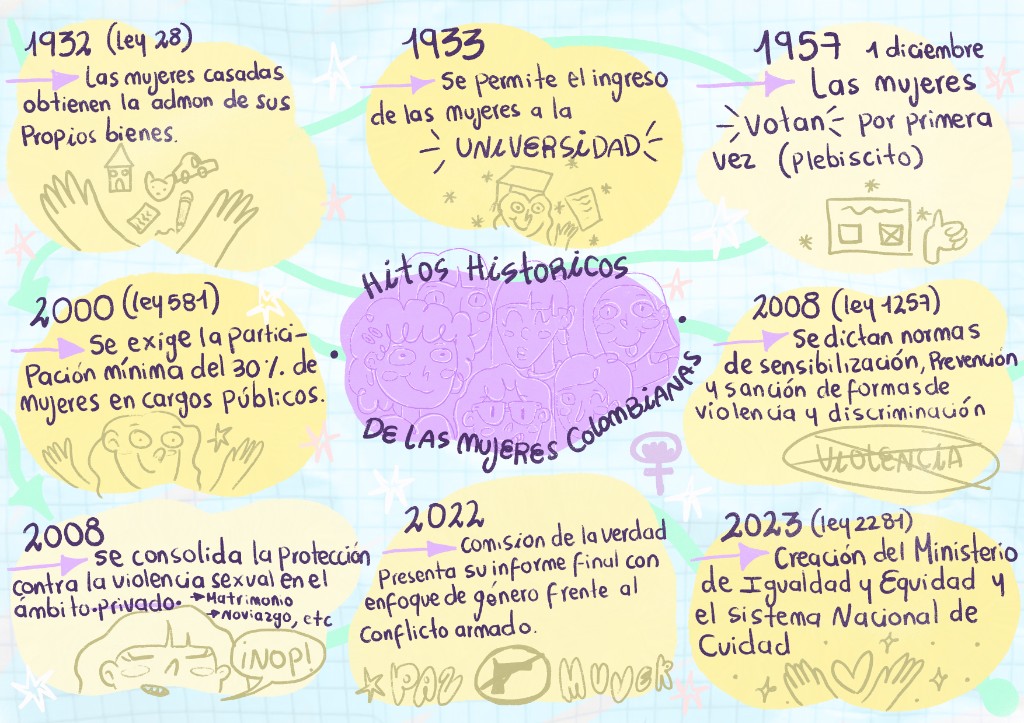 1932 (ley 28)
Las mujeres casadas
obtienen la admon de sus
Propios bienes.
1933
Se permite el ingreso
de las mujeres a la
UNIVERSIDAD
1957 1 diciembre
Las mujeres
votan por primera
vez (plebiscito)
Hitos Historicos
DE LAS MUJERES COLOMBIANAS
2000 (ley 581)
Se exige la partici-
Pación mínima del 30%. de
mujeres en cargos públicos.
2008 (ley 1257)
Se dictan normas
de sensibilización, Prevención
y sanción de formas de
violencia y discriminación
VIOLENCIA
2008
se consolida la Protección
contra la violencia sexual en el
ámbito privado. → Matrimonio
→ Noviazgo, etc
¡NOP!
2022
Comisión de la verdad
Presenta su informe final con
enfoque de género frente al
conflicto armado.
PAZ MUJER
2023 (ley 2281)
Creación del Ministerio
de Igualdad y Equidad y
el sistema Nacional de
Cuidad